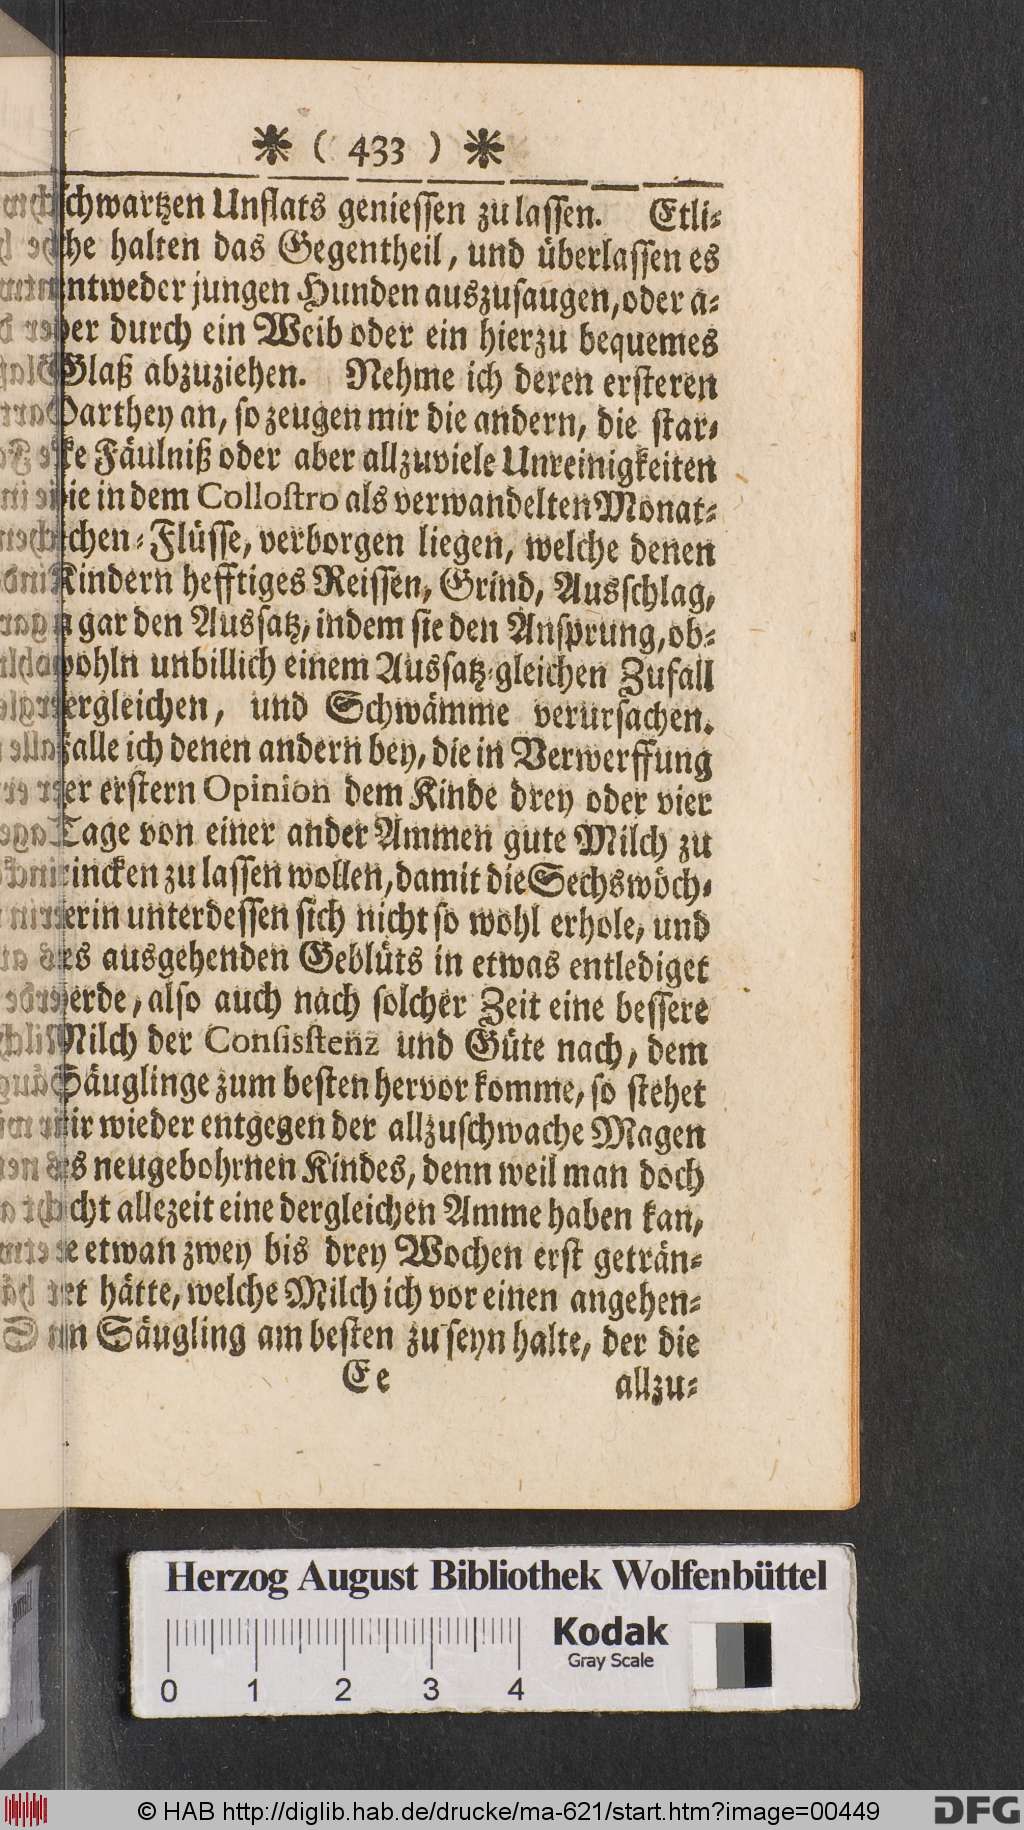 ❋ ( 433 ) ❋
schwartzen Unflats geniessen zu lassen. Etli-
che halten das Gegentheil, und überlassen es
entweder jungen Hunden auszusaugen, oder a-
ber durch ein Weib oder ein hierzu bequemes
Glaß abzuziehen. Nehme ich deren ersteren
Parthey an, so zeugen mir die andern, die star-
cke Fäulniß oder aber allzuviele Unreinigkeiten
die in dem Collostro als verwandelten Monat-
lichen-Flüsse, verborgen liegen, welche denen
Kindern hefftiges Reissen, Grind, Ausschlag,
ja gar den Aussatz, indem sie den Ansprung, ob-
wohln unbillich einem Aussatz-gleichen Zufall
vergleichen, und Schwämme verursachen.
Falle ich denen andern bey, die in Verwerffung
der erstern Opinion dem Kinde drey oder vier
Tage von einer ander Ammen gute Milch zu
trincken zu lassen wollen, damit die Sechswöch-
nerin unterdessen sich nicht so wohl erhole, und
des ausgehenden Geblüts in etwas entlediget
werde, also auch nach solcher Zeit eine bessere
Milch der Consistenz und Güte nach, dem
Säuglinge zum besten hervor komme, so stehet
mir wieder entgegen der allzuschwache Magen
des neugebohrnen Kindes, denn weil man doch
nicht allezeit eine dergleichen Amme haben kan,
die etwan zwey bis drey Wochen erst geträn-
cket hätte, welche Milch ich vor einen angehen-
den Säugling am besten zu seyn halte, der die
Ee allzu-
Herzog August Bibliothek Wolfenbüttel
0 1 2 3 4
Kodak
Gray Scale
© HAB http://diglib.hab.de/drucke/ma-621/start.htm?image=00449
DFG